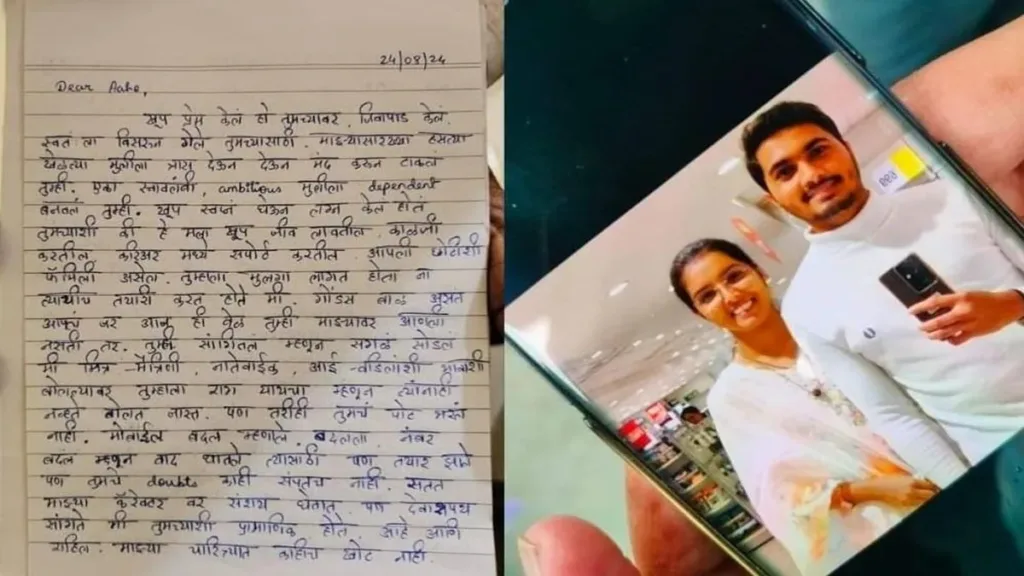 24/08/24
Dear Aaho,
खूप प्रेम केलं हो तुमच्यावर. जिवापाड केलं.
स्वतःला विसरून गेले तुमच्यासाठी. माझ्यासारख्या हसत्या
खेळत्या मुलीला त्रास देऊन देऊन मंद करून टाकलं
तुम्ही. एका स्वावलंबी, ambitious मुलीला dependent
बनवलं तुम्ही. खूप स्वप्नं घेऊन लग्न केलं होतं
तुमच्याशी की हे मला खूप जीव लावतील काळजी
करतील करिअर मध्ये सपोर्ट करतील. आपली छोटीशी
फॅमिली असेल. तुम्हाला मुलगा लागत होता ना
त्याचीच तयारी करत होते मी. गोंडस बाळ असतं
आपलं जर आज ही वेळ तुम्ही माझ्यावर आणली
नसती तर. तुम्ही सांगितलं म्हणून सगळं सोडलं
मी मित्र-मैत्रिणी, नातेवाईक, आई-वडीलांशी भावाशी
बोलल्यावर तुम्हाला राग यायचा म्हणून त्यांनाही
नव्हते बोलत जास्त. पण तरीही तुमचं पोट भरलं
नाही. मोबाईल बदल म्हणाले, बदलला. नंबर
बदल म्हणून वाद घातले त्यासाठी पण तयार झाले
पण तुमचे doubts काही संपतच नाही. सतत
माझ्या कॅरेक्टर वर संशय घेतात. पण देवाशपथ
सांगते मी तुमच्याशी प्रामाणिक होते आहे आणि
राहिल. माझ्या चारित्र्यात काहीच खोट नाही.